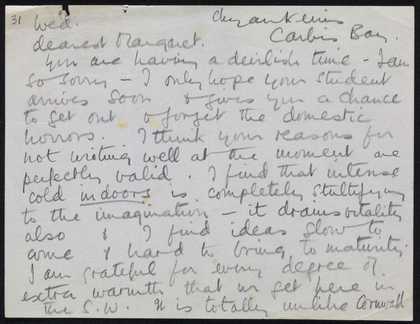 31 Wed. Chyankerris
dearest Margaret. Carbis Bay.
You are having a devilish time - I am
so sorry - I only hope your student
arrives soon & gives you a chance
to get out & forget the domestic
horrors. I think your reasons for
not writing well at the moment are
perfectly valid. I find that intense
cold indoors is completely stultifying
to the imagination - it drains vitality
also & I find ideas slow to
come & hard to bring to maturity.
I am grateful for every degree of
extra warmth that we get here in
the S.W. It is totally unlike Cornwall